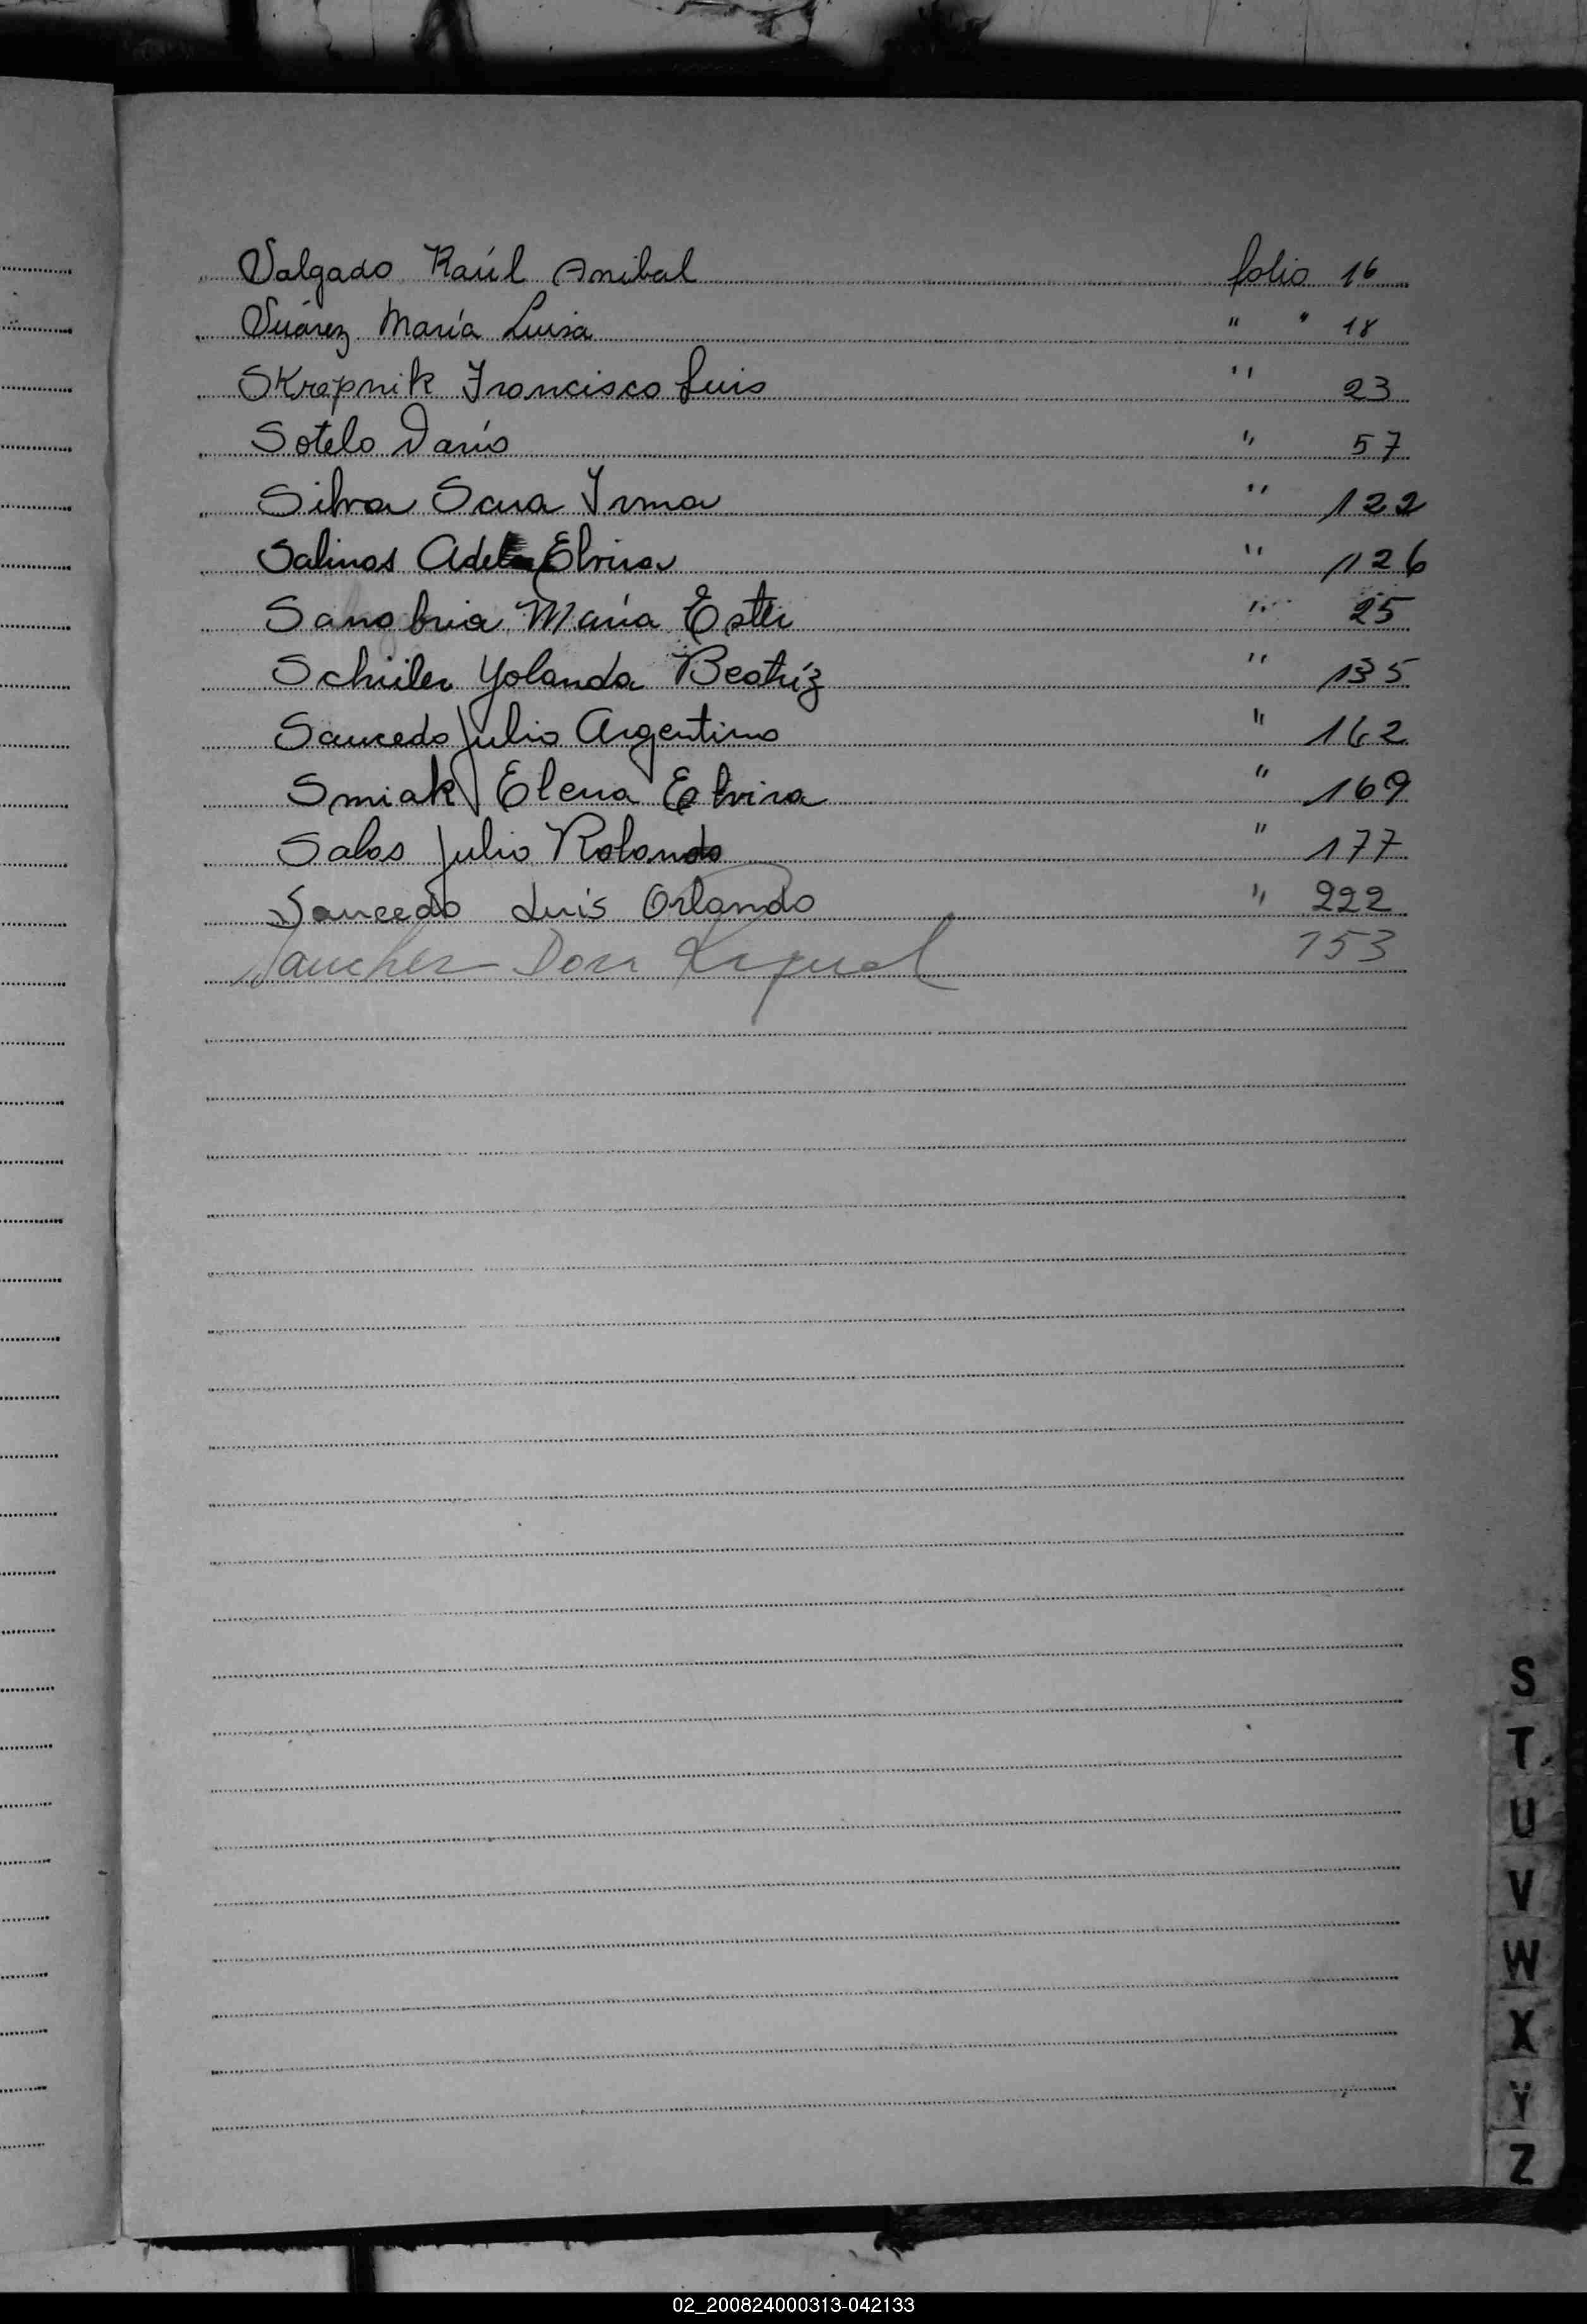 Salgado Raúl Anibal folio 16
Suárez María Luisa " " 18
Skrepnik Francisco Luis " 23
Sotelo Darío " 57
Silva Sara Irma " 122
Salinas Adela Elvira " 126
Sanabria María Ester " 25
Schüiler Yolanda Beatríz " 135
Saucedo Julio Argentino " 162
Smiak Elena Elvira " 169
Salas Julio Rolando " 177
Saucedo Luis Orlando " 222
Sanchez Raquel 153
S
T
U
V
W
X
Y
Z
02_200824000313-042133